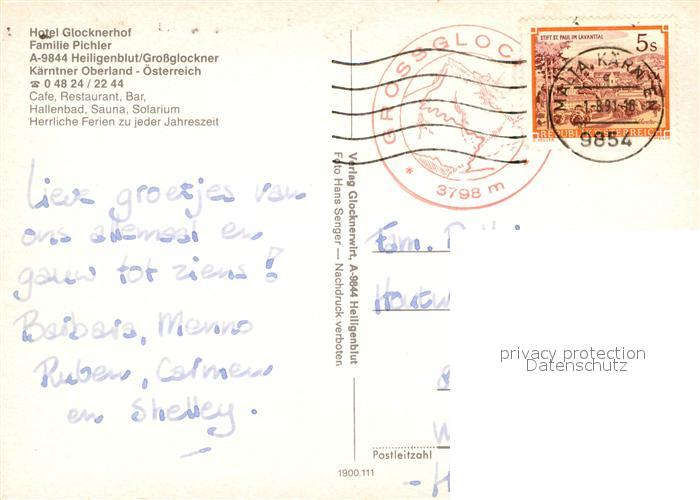 Hotel Glocknerhof
Familie Pichler
A-9844 Heiligenblut/Großglockner
Kärntner Oberland - Österreich
☎ 0 48 24 / 22 44
Cafe, Restaurant, Bar,
Hallenbad, Sauna, Solarium
Herrliche Ferien zu jeder Jahreszeit
Lieve groetjes van
ons allemaal en
gauw tot ziens!
Barbara, Menno
Ruben, Carmen
en Shelley.
Verlag Glocknerwirt, A-9844 Heiligenblut
Foto Hans Senger — Nachdruck verboten
GROSSGLOC
* 3798 m
STIFT ST. PAUL IM LAVANTTAL
5s
REPUBLIK ÖSTERREICH
MALTA, KÄRNTEN
9854
Fam.
privacy protection
Datenschutz
Postleitzahl
1900.111